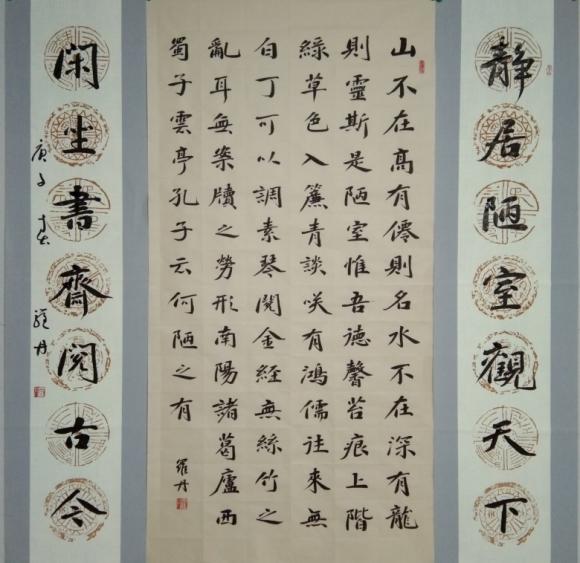 静居陋室觀天下
山不在高有僊則名水不在深有龍
則靈斯是陋室惟吾德馨苔痕上階
綠草色入簾青談咲有鴻儒往來無
白丁可以調素琴閱金經無絲竹之
亂耳無案牘之勞形南陽諸葛廬西
蜀子雲亭孔子云何陋之有
羅丹
閑坐書齋閱古今
庚子春 羅丹